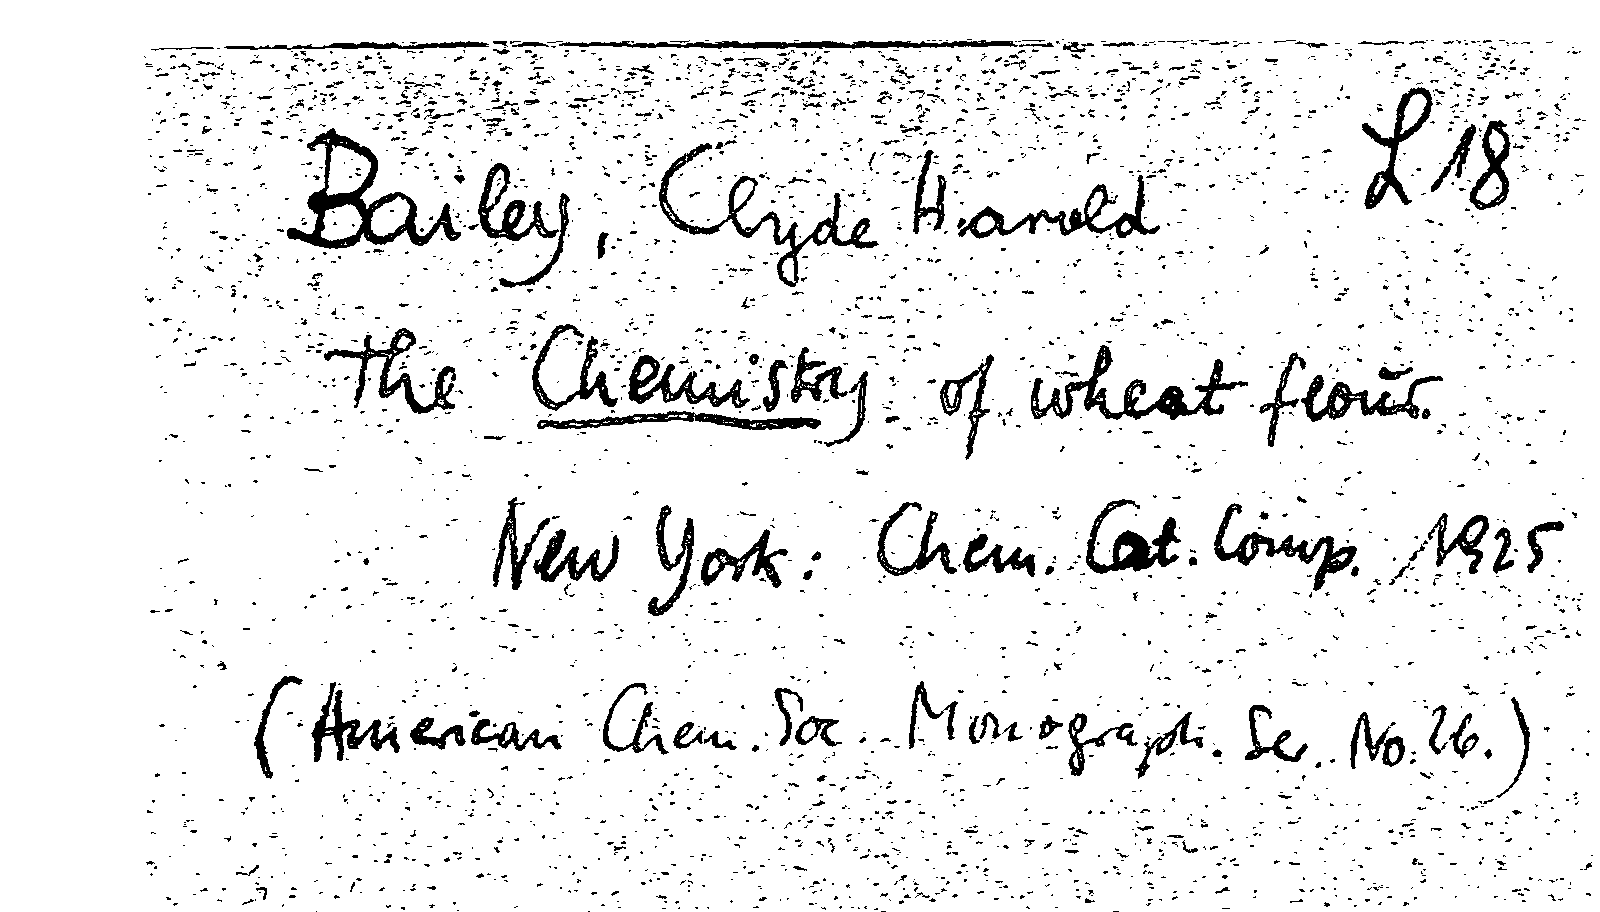 L 18
Bailey, Clyde Harold
The Chemistry of wheat flour.
New York: Chem. Cat. Comp. 1925
(American Chem. Soc. Monograph. Ser. No. 26.)